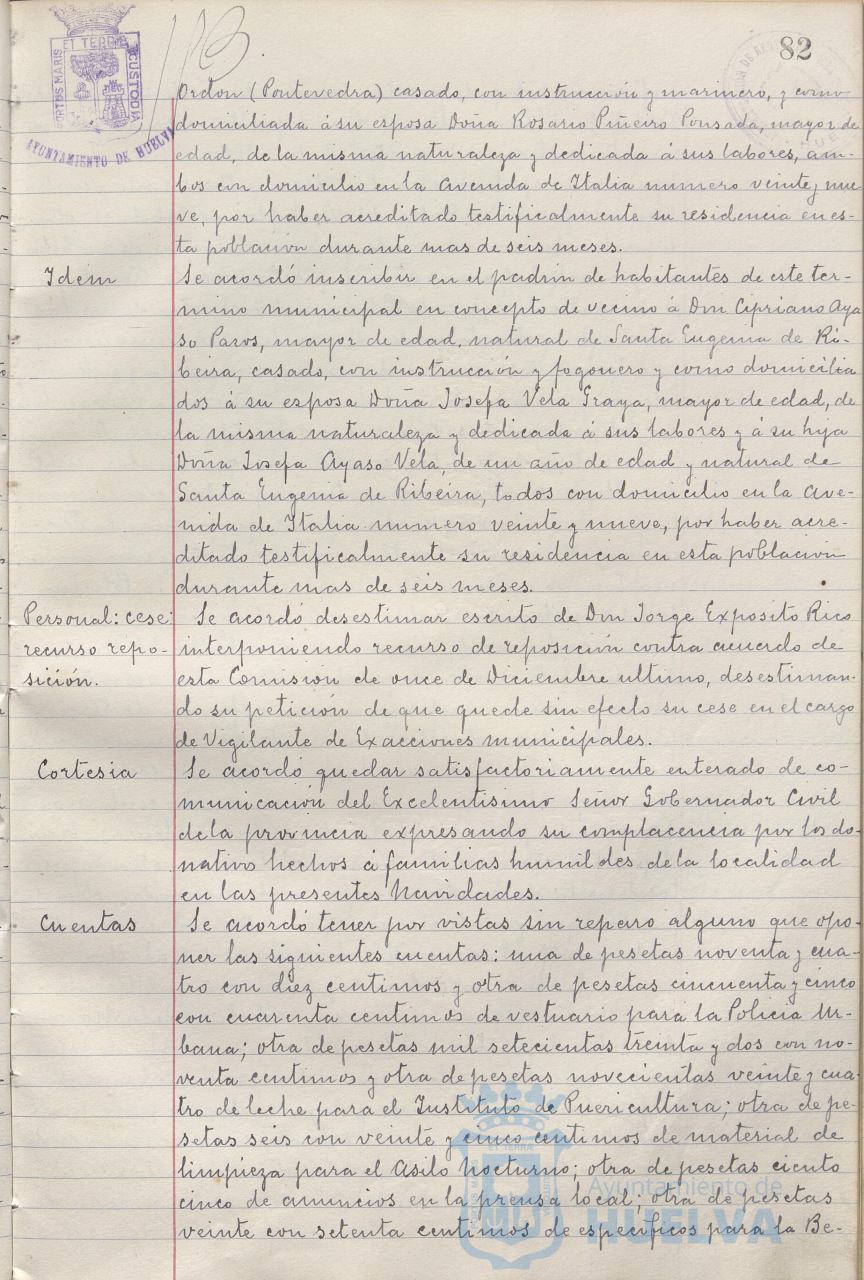 82
PORTUS MARIS
ET TERRE
CUSTODIA
AYUNTAMIENTO DE HUELVA
Ordon (Pontevedra) casado, con instrucción y marinero, y como
domiciliada á su esposa Doña Rosario Piñeiro Pousada, mayor de
edad, de la misma naturaleza y dedicada á sus labores, am-
bos con domicilio en la Avenida de Italia numero veinte y nue-
ve, por haber acreditado testificalmente su residencia en es-
ta población durante mas de seis meses.
Idem
Se acordó inscribir en el padrón de habitantes de este ter-
mino municipal en concepto de vecino á Don Cipriano Aya
so Paros, mayor de edad, natural de Santa Eugenia de Ri-
beira, casado, con instrucción y fogonero y como domicilia
dos á su esposa Doña Josefa Vela Graya, mayor de edad, de
la misma naturaleza y dedicada á sus labores y á su hija
Doña Josefa Ayaso Vela, de un año de edad y natural de
Santa Eugenia de Ribeira, todos con domicilio en la Ave-
nida de Italia numero veinte y nueve, por haber acre-
ditado testificalmente su residencia en esta población
durante mas de seis meses.
Personal: cese:
recurso repo-
sición.
Se acordó desestimar escrito de Don Jorge Exposito Rico
interponiendo recurso de reposición contra acuerdo de
esta Comisión de once de Diciembre ultimo, desestiman-
do su petición de que quede sin efecto su cese en el cargo
de Vigilante de Exacciones municipales.
Cortesia
Se acordó quedar satisfactoriamente enterado de co-
municación del Excelentisimo Señor Gobernador Civil
de la provincia expresando su complacencia por los do-
nativos hechos á familias humildes de la localidad
en las presentes Navidades.
Cuentas
Se acordó tener por vistas sin reparo alguno que opo-
ner las siguientes cuentas: una de pesetas noventa y cua-
tro con diez centimos y otra de pesetas cincuenta y cinco
con cuarenta centimos de vestuario para la Policia Ur-
bana; otra de pesetas mil setecientas treinta y dos con no-
venta centimos y otra de pesetas novecientas veinte y cua-
tro de leche para el Instituto de Puericultura; otra de pe-
setas seis con veinte y cinco centimos de material de
limpieza para el Asilo Nocturno; otra de pesetas ciento
cinco de anuncios en la prensa local; otra de pesetas
veinte con setenta centimos de especificos para la Be-
Ayuntamiento de
HUELVA